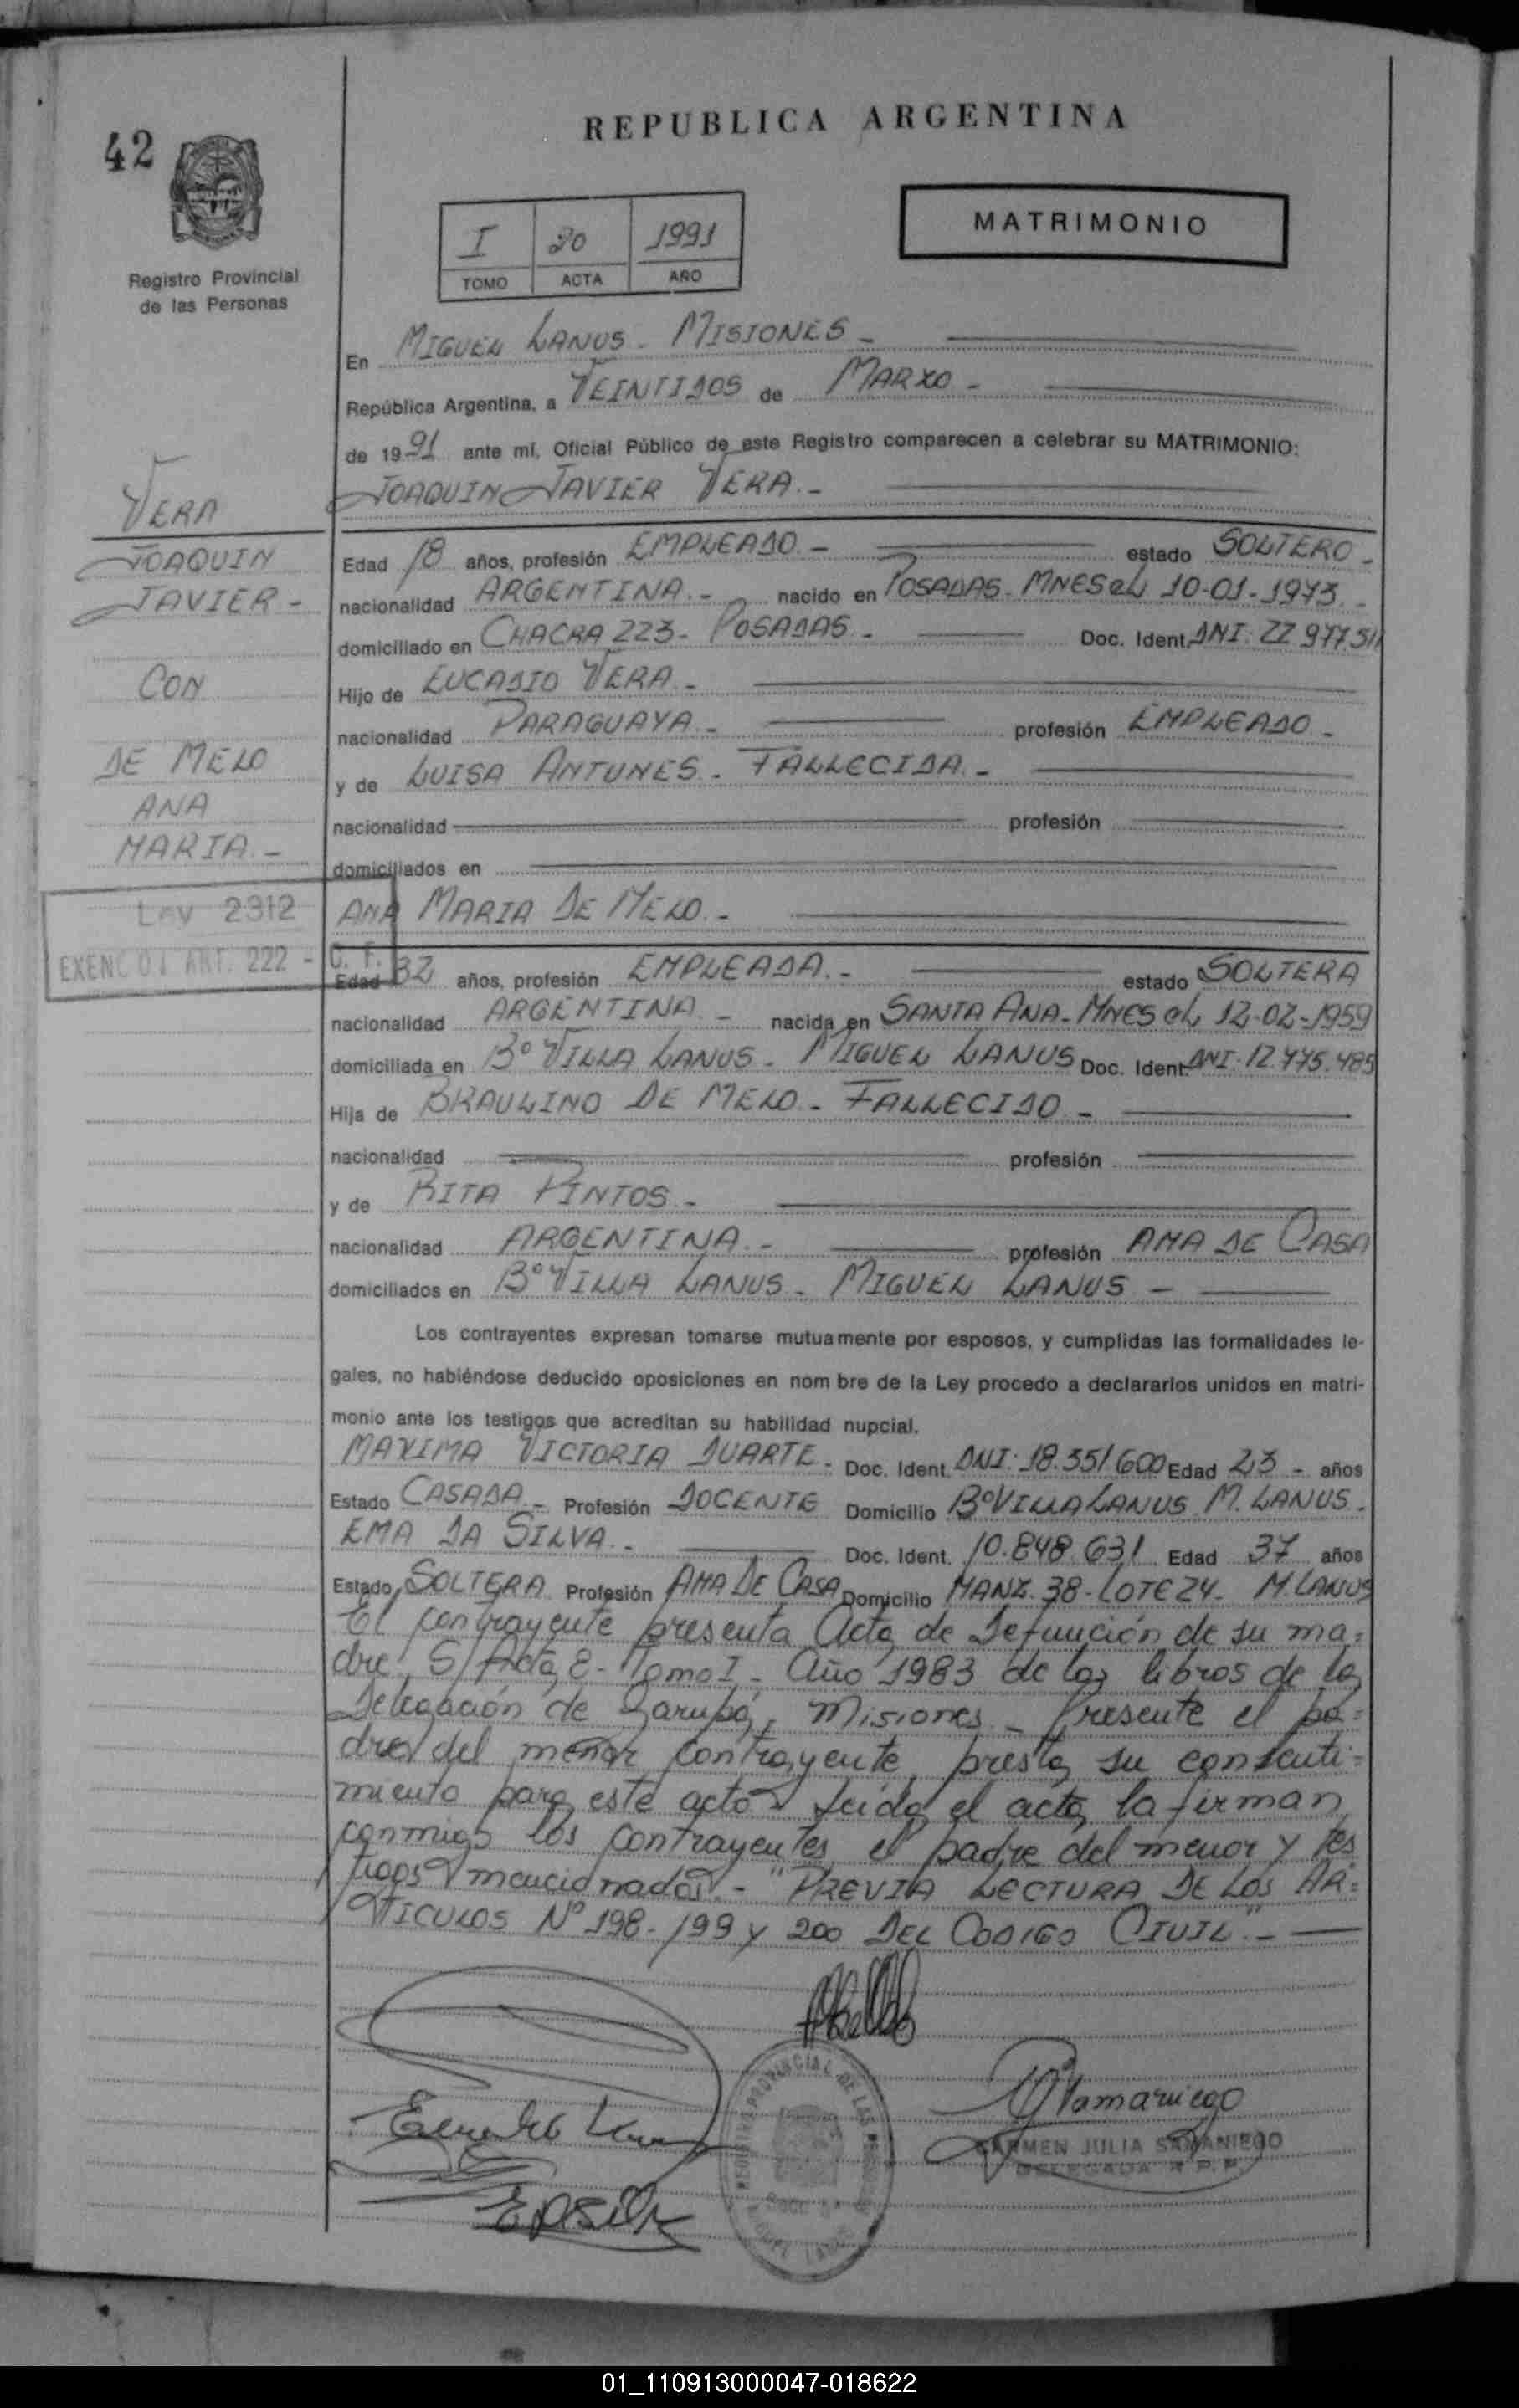 42
REPUBLICA ARGENTINA
Registro Provincial
de las Personas
I 20 1991
TOMO ACTA AÑO
MATRIMONIO
En MIGUEL LANUS - MISIONES -
República Argentina, a VEINTIDOS de MARZO -
de 1991 ante mí, Oficial Público de este Registro comparecen a celebrar su MATRIMONIO:
JOAQUIN JAVIER VERA. -
VERA
JOAQUIN
JAVIER -
CON
DE MELO
ANA
MARIA. -
Ley 2312
EXENC 01 ART. 222 - C. F.
Edad 18 años, profesión EMPLEADO. - estado SOLTERO -
nacionalidad ARGENTINA. - nacido en POSADAS - MNES el 10-01-1973. -
domiciliado en CHACRA 223 - POSADAS - Doc. Ident. DNI: 22.977.511
Hijo de EUCADIO VERA. -
nacionalidad PARAGUAYA. - profesión EMPLEADO -
y de LUISA ANTUNES - FALLECIDA. -
nacionalidad profesión
domiciliados en
ANA MARIA DE MELO. -
Edad 32 años, profesión EMPLEADA. - estado SOLTERA
nacionalidad ARGENTINA - nacida en SANTA ANA - MNES el 12-02-1959
domiciliada en Bº VILLA LANUS - MIGUEL LANUS Doc. Ident. DNI: 12.775.485
Hija de BRAULINO DE MELO - FALLECIDO -
nacionalidad profesión
y de RITA PINTOS -
nacionalidad ARGENTINA. - profesión AMA DE CASA
domiciliados en Bº VILLA LANUS - MIGUEL LANUS -
Los contrayentes expresan tomarse mutuamente por esposos, y cumplidas las formalidades le-
gales, no habiéndose deducido oposiciones en nom bre de la Ley procedo a declararlos unidos en matri-
monio ante los testigos que acreditan su habilidad nupcial.
MAXIMA VICTORIA DUARTE - Doc. Ident. DNI: 18.351.600 Edad 23 - años
Estado CASADA - Profesión DOCENTE Domicilio Bº VILLA LANUS M. LANUS -
EMA DA SILVA. - Doc. Ident. 10.848.631 Edad 37 años
Estado SOLTERA Profesión AMA DE CASA Domicilio MANZ. 38 - LOTE 24 - M. LANUS
El contrayente presenta Acta de Defunción de su ma=
dre, S/Acta 8 - Tomo I - Año 1983 de los libros de la
Delegación de Garupá, Misiones - Presente el pa=
dre del menor contrayente, presta su consenti=
miento para este acto. Leída el acta, la firman
conmigo los contrayentes, el padre del menor y tes
tigos mencionados - "PREVIA LECTURA DE LOS AR=
TICULOS Nº 198 - 199 y 200 DEL CODIGO CIVIL" -
CARMEN JULIA SAMANIEGO
DELEGADA R.P.P.
REGISTRO PROVINCIAL DE LAS
01_110913000047-018622